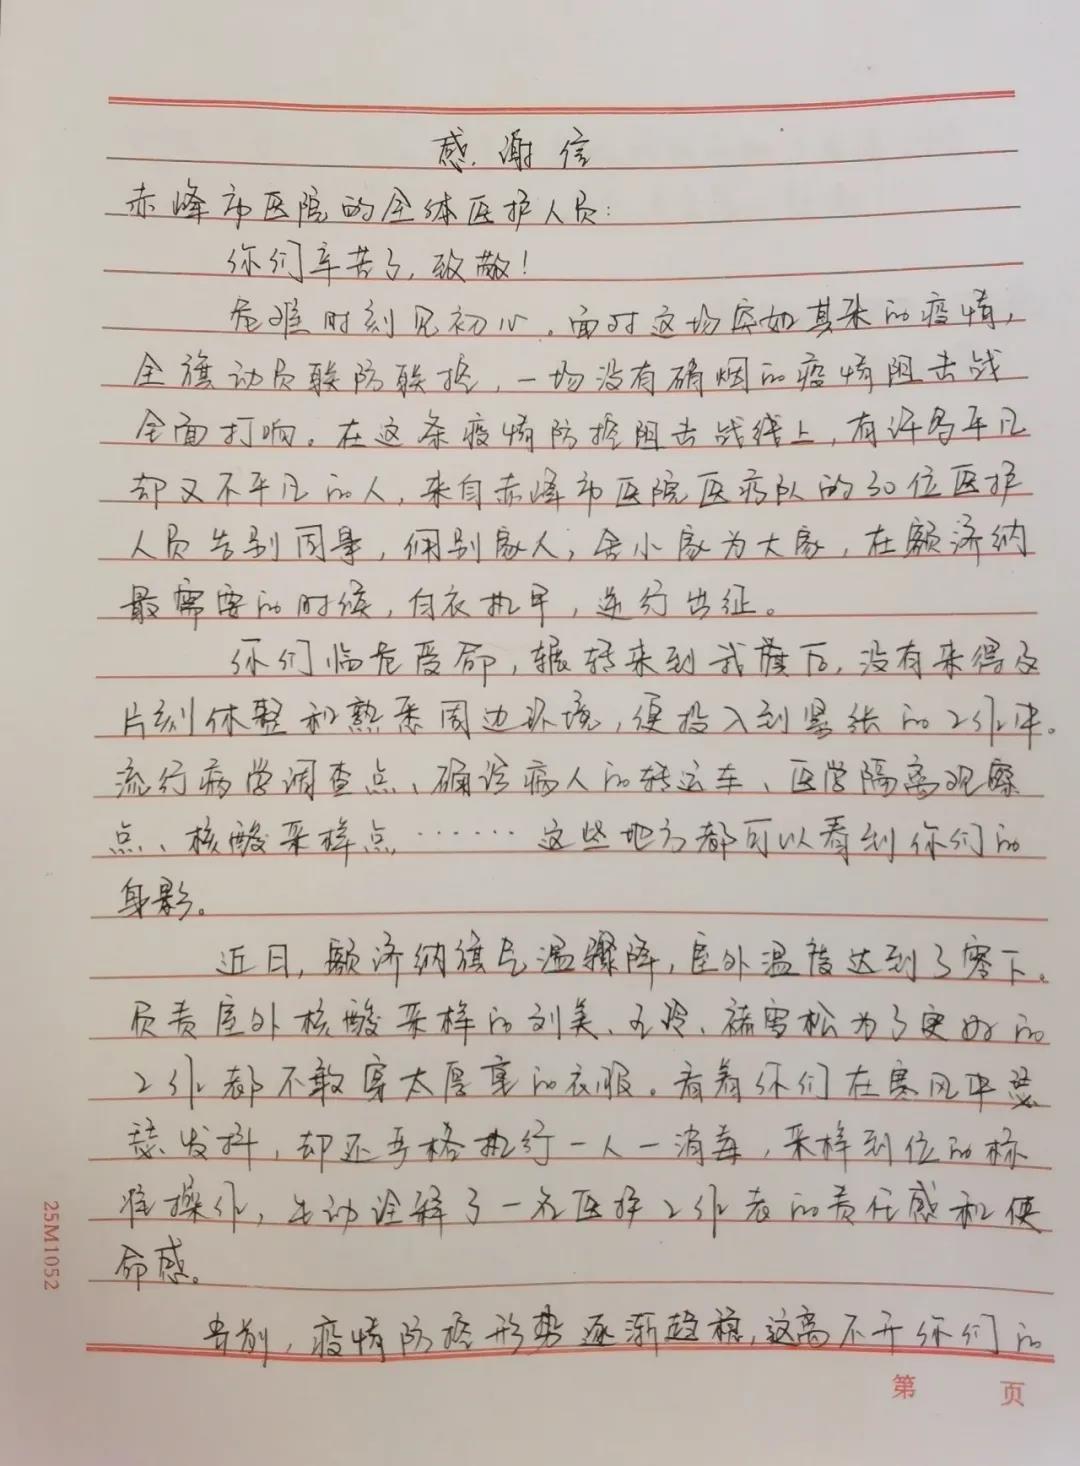 感谢信
赤峰市医院的全体医护人员：
你们辛苦了，致敬！
危难时刻见初心。面对这场突如其来的疫情，
全旗动员联防联控，一场没有硝烟的疫情阻击战
全面打响。在这条疫情防控阻击战线上，有许多平凡
却又不平凡的人，来自赤峰市医院医疗队的30位医护
人员告别同事，佣别家人，舍小家为大家，在额济纳
最需要的时候，白衣执甲，逆行出征。
你们临危受命，辗转来到我旗后，没有来得及
片刻休整和熟悉周边环境，便投入到紧张的工作中。
流行病学调查点、确诊病人的转运车、医学隔离观察
点、核酸采样点……这些地方都可以看到你们的
身影。
近日，额济纳旗气温骤降，室外温度达到了零下。
负责室外核酸采样的刘美、褚雪松为了更好的
工作都不敢穿太厚重的衣服。看着你们在寒风中瑟
瑟发抖，却还严格执行一人一消毒，采样到位的标
准操作，生动诠释了一名医护工作者的责任感和使
命感。
当前，疫情防控形势逐渐趋稳，这离不开你们的
25M1052
第 页